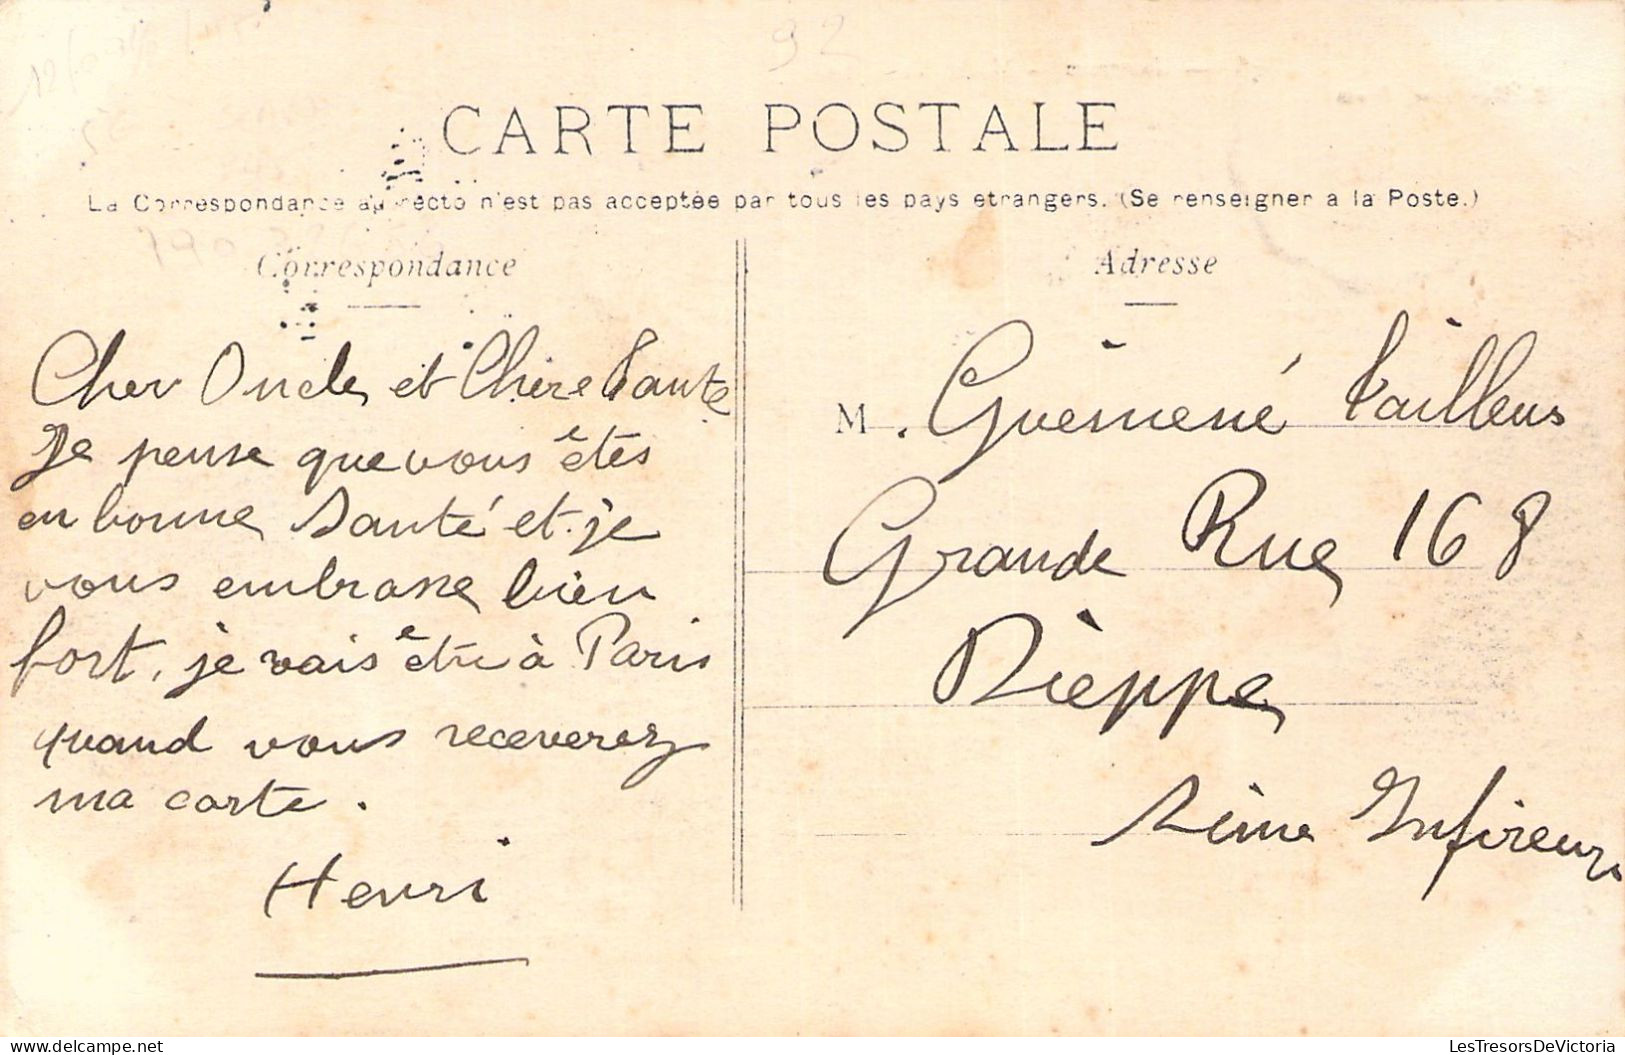 92
CARTE POSTALE
La Correspondance au recto n'est pas acceptée par tous les pays etrangers. (Se renseigner a la Poste.)
Correspondance
Cher Oncle et Chère Tante
Je pense que vous êtes
en bonne Santé et je
vous embrasse bien
fort, je vais être à Paris
quand vous receverez
ma carte.
Henri
Adresse
M. Guèmené tailleus
Grande Rue 168
Dieppe
Seine Infireur
LesTresorsDeVictoria